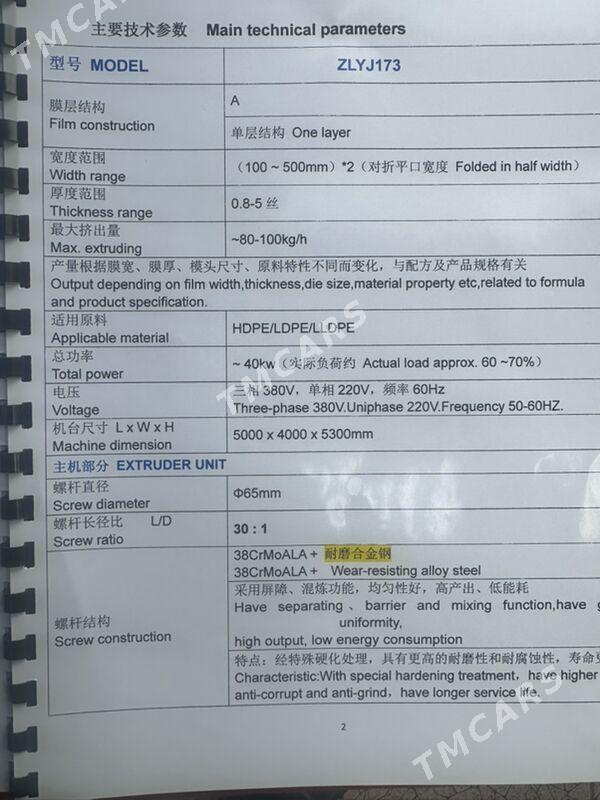 主要技术参数 Main technical parameters
型号 MODEL ZLYJ173
膜层结构 A
Film construction 单层结构 One layer
宽度范围
Width range （100 ~ 500mm）*2（对折平口宽度 Folded in half width）
厚度范围
Thickness range 0.8-5 丝
最大挤出量
Max. extruding ~80-100kg/h
产量根据膜宽、膜厚、模头尺寸、原料特性不同而变化，与配方及产品规格有关
Output depending on film width,thickness,die size,material property etc,related to formula
and product specification.
适用原料
Applicable material HDPE/LDPE/LLDPE
总功率
Total power ~ 40kw（实际负荷约 Actual load approx. 60 ~70%）
电压 三相 380V，单相 220V，频率 60Hz
Voltage Three-phase 380V.Uniphase 220V.Frequency 50-60HZ.
机台尺寸 L x W x H
Machine dimension 5000 x 4000 x 5300mm
主机部分 EXTRUDER UNIT
螺杆直径
Screw diameter Φ65mm
螺杆长径比 L/D
Screw ratio 30 : 1
38CrMoALA + 耐磨合金钢
38CrMoALA + Wear-resisting alloy steel
采用屏障、混炼功能，均匀性好，高产出、低能耗
螺杆结构
Screw construction
Have separating、barrier and mixing function,have
uniformity,
high output, low energy consumption
特点：经特殊硬化处理，具有更高的耐磨性和耐腐蚀性，寿命
Characteristic:With special hardening treatment，have higher
anti-corrupt and anti-grind，have longer service life.
2
TMCARS
TMCARS
TMCARS
TMCARS